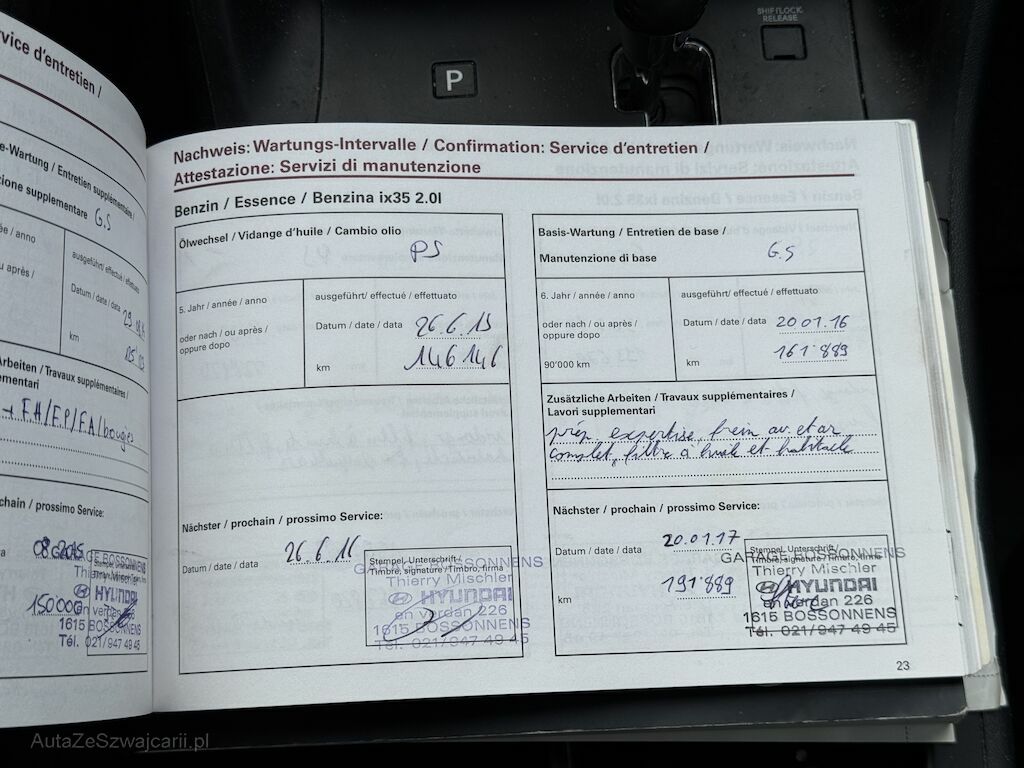 SHIFTLOCK
RELEASE
P
rvice d'entretien /
e-Wartung / Entretien supplémentaire /
zione supplementare G.S
ée / anno
ausgeführt/ effectué / effettuato
u après /
Datum / date / data
km
Arbeiten / Travaux supplémentaires /
ementari
+ FH/EP/FA/bougies
chain / prossimo Service:
08.2015
150'000
Stempel, Unterschrift /
GARAGE BOSSONNENS
Thierry Mischler
HYUNDAI
en verdan 226
1615 BOSSONNENS
Tél. 021/947 49 45
Nachweis: Wartungs-Intervalle / Confirmation: Service d'entretien /
Attestazione: Servizi di manutenzione
Benzin / Essence / Benzina ix35 2.0l
Ölwechsel / Vidange d'huile / Cambio olio
PS
5. Jahr / année / anno
ausgeführt/ effectué / effettuato
oder nach / ou après /
oppure dopo
Datum / date / data 26.6.15
km 146146
Nächster / prochain / prossimo Service:
Datum / date / data 26.6.16
Stempel, Unterschrift /
Timbre, signature / Timbro, firma
GARAGE BOSSONNENS
Thierry Mischler
HYUNDAI
en verdan 226
1615 BOSSONNENS
Tél. 021/947 49 45
Basis-Wartung / Entretien de base /
Manutenzione di base
G.S
6. Jahr / année / anno
ausgeführt/ effectué / effettuato
oder nach / ou après /
oppure dopo
Datum / date / data 20.01.16
90'000 km
km 161'889
Zusätzliche Arbeiten / Travaux supplémentaires /
Lavori supplementari
prép. expertise, frein av. et ar
complet, filtre à huile et habitacle
Nächster / prochain / prossimo Service:
Datum / date / data 20.01.17
km 191'889
Stempel, Unterschrift /
Timbre, signature / Timbro, firma
GARAGE BOSSONNENS
Thierry Mischler
HYUNDAI
en verdan 226
1615 BOSSONNENS
Tél. 021/947 49 45
23
AutaZeSzwajcarii.pl